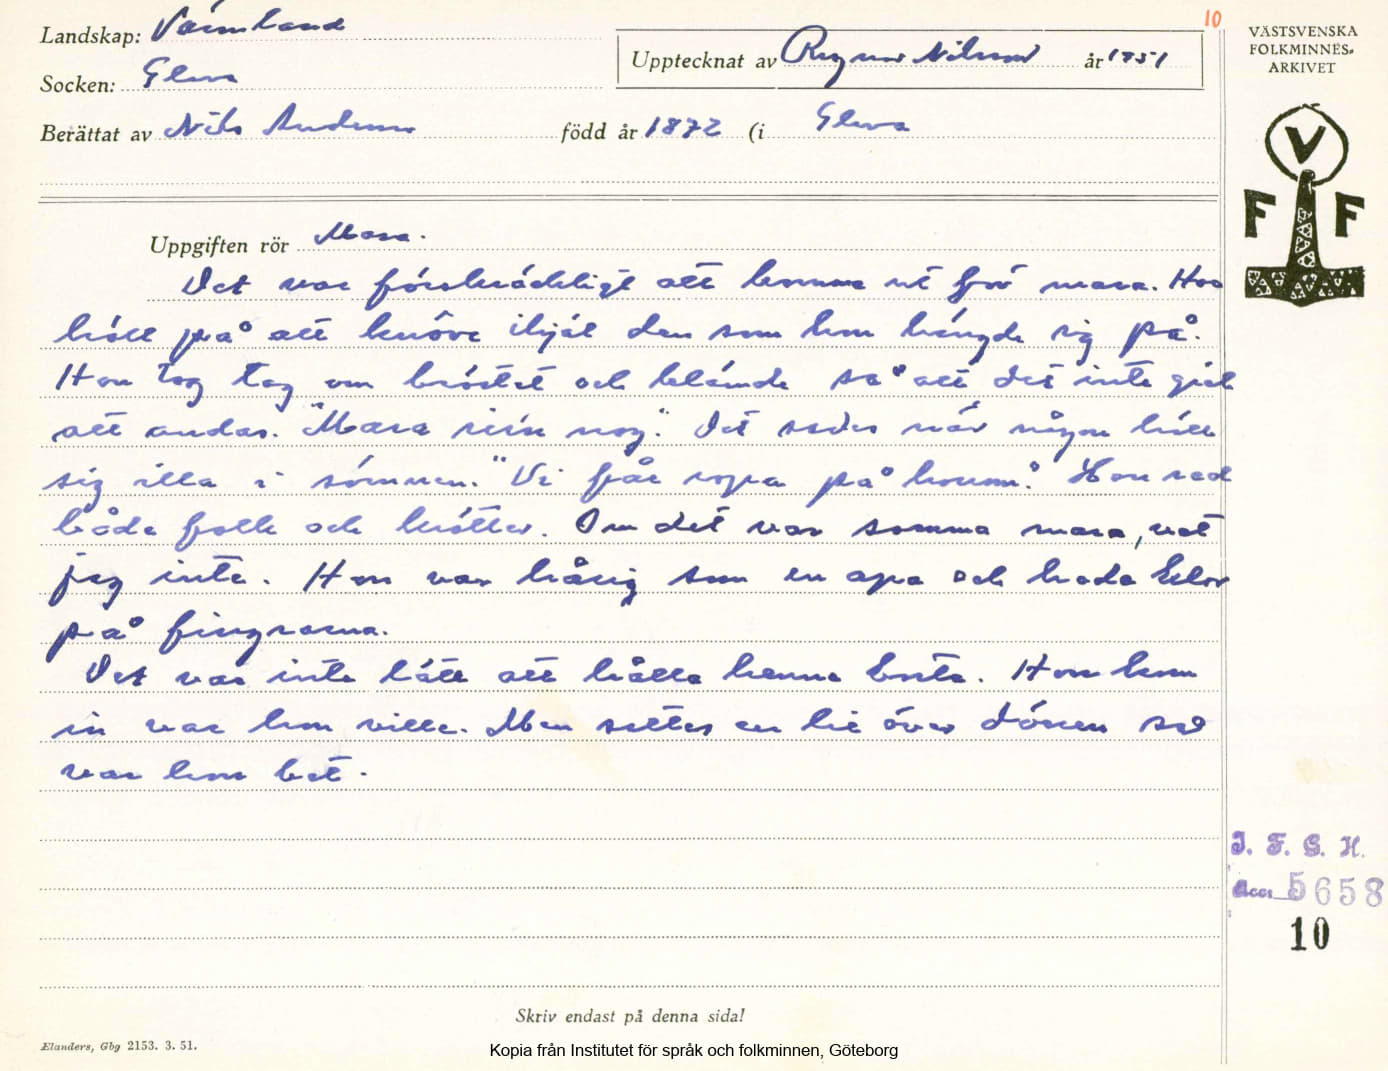 10
Landskap: Värmland
Upptecknat av Ragnar Nilsson år 1951
VÄSTSVENSKA
FOLKMINNES-
ARKIVET
Socken: Glava
Berättat av Nils Andersson född år 1872 (i Glava
V
F F
Uppgiften rör Mara.
Det var förskräckligt att komma ut för mara. Hon
höll på att knôva ihjäl den som hon hängde sig på.
Hon tog tag om bröstet och klämde så att det inte gick
att andas. "Mara rir'n nog." Det sades när någon lät
sig illa i sömnen. "Vi får ropa på honom." Hon red
både folk och krötter. Om det var somma mara, vet
jag inte. Hon var hårig som en apa och hade klor
på fingrarna.
Det var inte lätt att hålla henne borta. Hon kom
in var hon ville. Men sattes en lie över dörren så
var hon bet.
I. F. G. H.
Acc. 5658
10
Skriv endast på denna sida!
Elanders, Gbg 2153. 3. 51.
Kopia från Institutet för språk och folkminnen, Göteborg